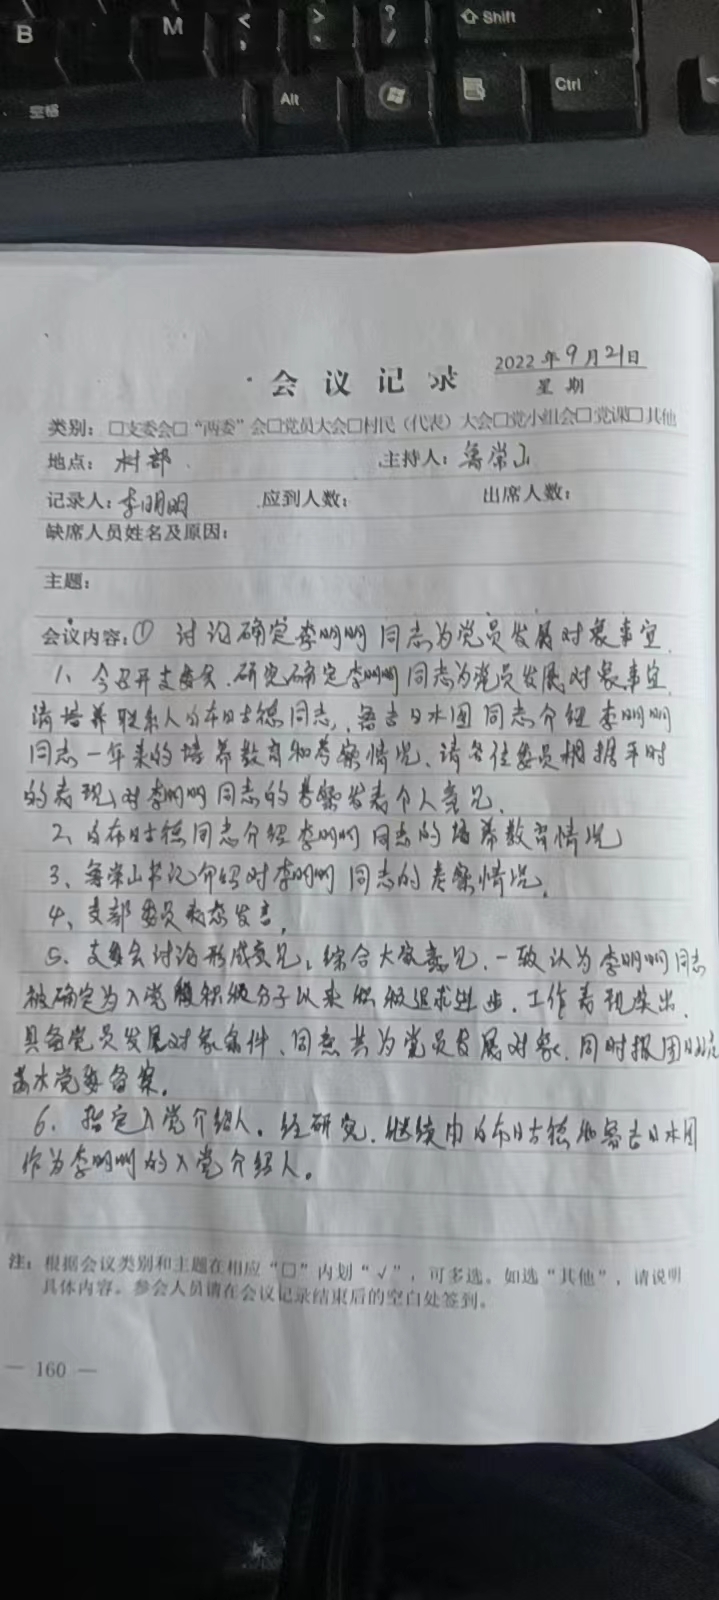 B
M
<
,
>
.
?
/
Shift
空格
Alt
Ctrl
会议记录
2022年9月21日
星期
类别：□支委会□“两委”会□党员大会□村民（代表）大会□党小组会□党课□其他
地点：村部 主持人：常山
记录人：李明明 应到人数： 出席人数：
缺席人员姓名及原因：
主题：
会议内容：① 讨论确定李明明同志为党员发展对象事宜.
1、今召开支委会.研究确定李明明同志为党员发展对象事宜
请培养联系人布日古德同志,吉日木图同志介绍李明明
同志一年来的培养教育和考察情况、请各位委员根据平时
的表现,对李明明同志的考察发表个人意见.
2、布日古德同志介绍李明明同志的培养教育情况
3、常山书记介绍对李明明同志的考察情况.
4、支部委员表态发言.
5、支委会讨论形成意见:综合大家意见.一致认为李明明同志
被确定为入党积极分子以来积极追求进步.工作表现突出.
具备党员发展对象条件、同意其为党员发展对象.同时报
苏木党委备案.
6、指定入党介绍人.经研究.继续由布日古德和吉日木图
作为李明明的入党介绍人。
注：根据会议类别和主题在相应“□”内划“√”，可多选。如选“其他”，请说明
具体内容。参会人员请在会议记录结束后的空白处签到。
— 160 —